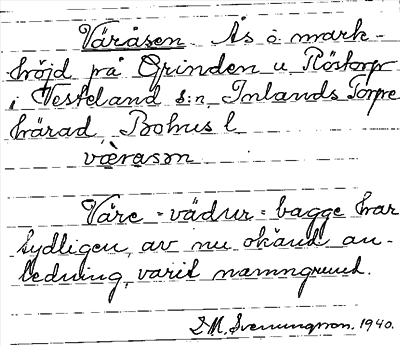 Våråsen Ås o mark-
höjd på Grinden u Röstorp
i Vesteland s:n, Inlands Torpe
härad, Bohus l
væ̀rasǝn
Våre = vädur = bagge har
tydligen, av nu okänd an-
ledning, varit namngrund.
S M. Svenningson. 1940.